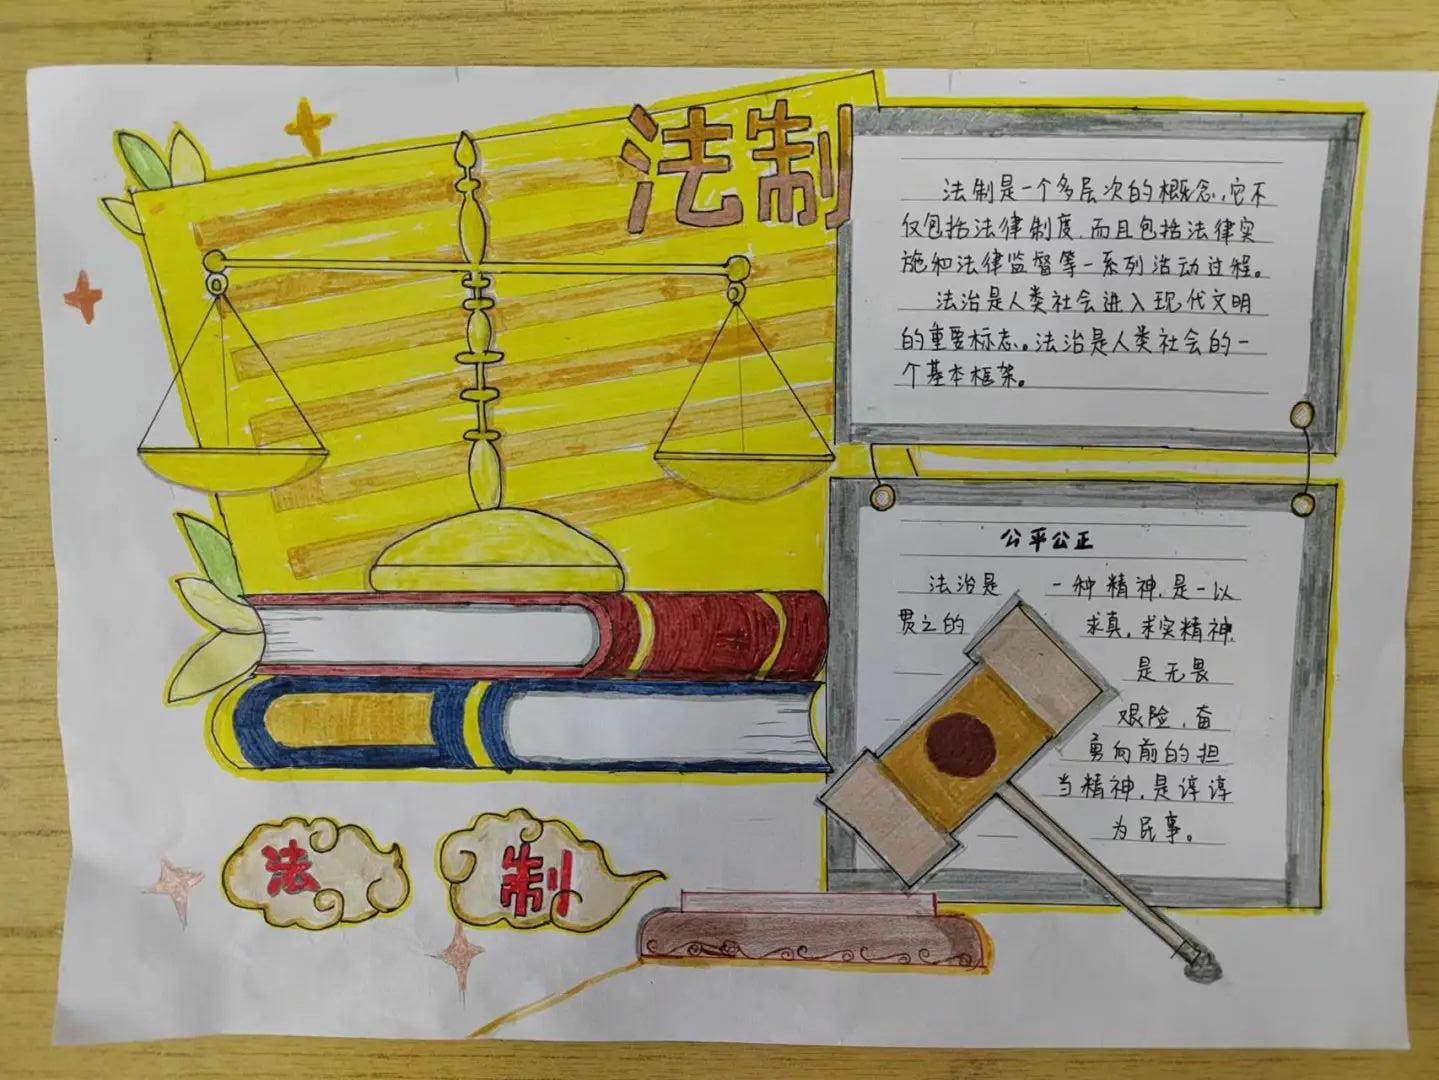 法制
法制是一个多层次的概念,它不
仅包括法律制度,而且包括法律实
施和法律监督等一系列活动过程。
法治是人类社会进入现代文明
的重要标志。法治是人类社会的一
个基本框架。
公平公正
法治是 一种精神,是一以
贯之的 求真,求实精神
是无畏
艰险,奋
勇向前的担
当精神,是谆谆
为民事。
法 制